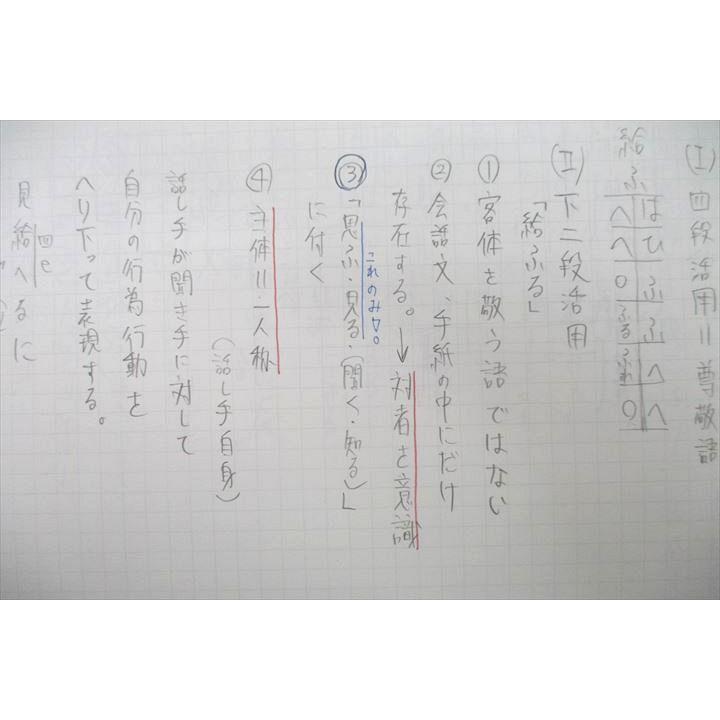 (Ⅰ) 四段活用＝尊敬語
給ふ
は ひ ふ ふ へ へ
へ へ ○ ふる ふれ ○
(Ⅱ) 下二段活用
「給ふる」
① 客体を敬う語ではない
② 会話文、手紙の中にだけ
存在する。→対者を意識
これのみ▽。
③「思ふ・見る・(聞く・知る)」
に付く
④ 主体＝一人称
(話し手自身)
話し手が聞き手に対して
自分の行為行動を
へり下って表現する。
四e
見給へるに